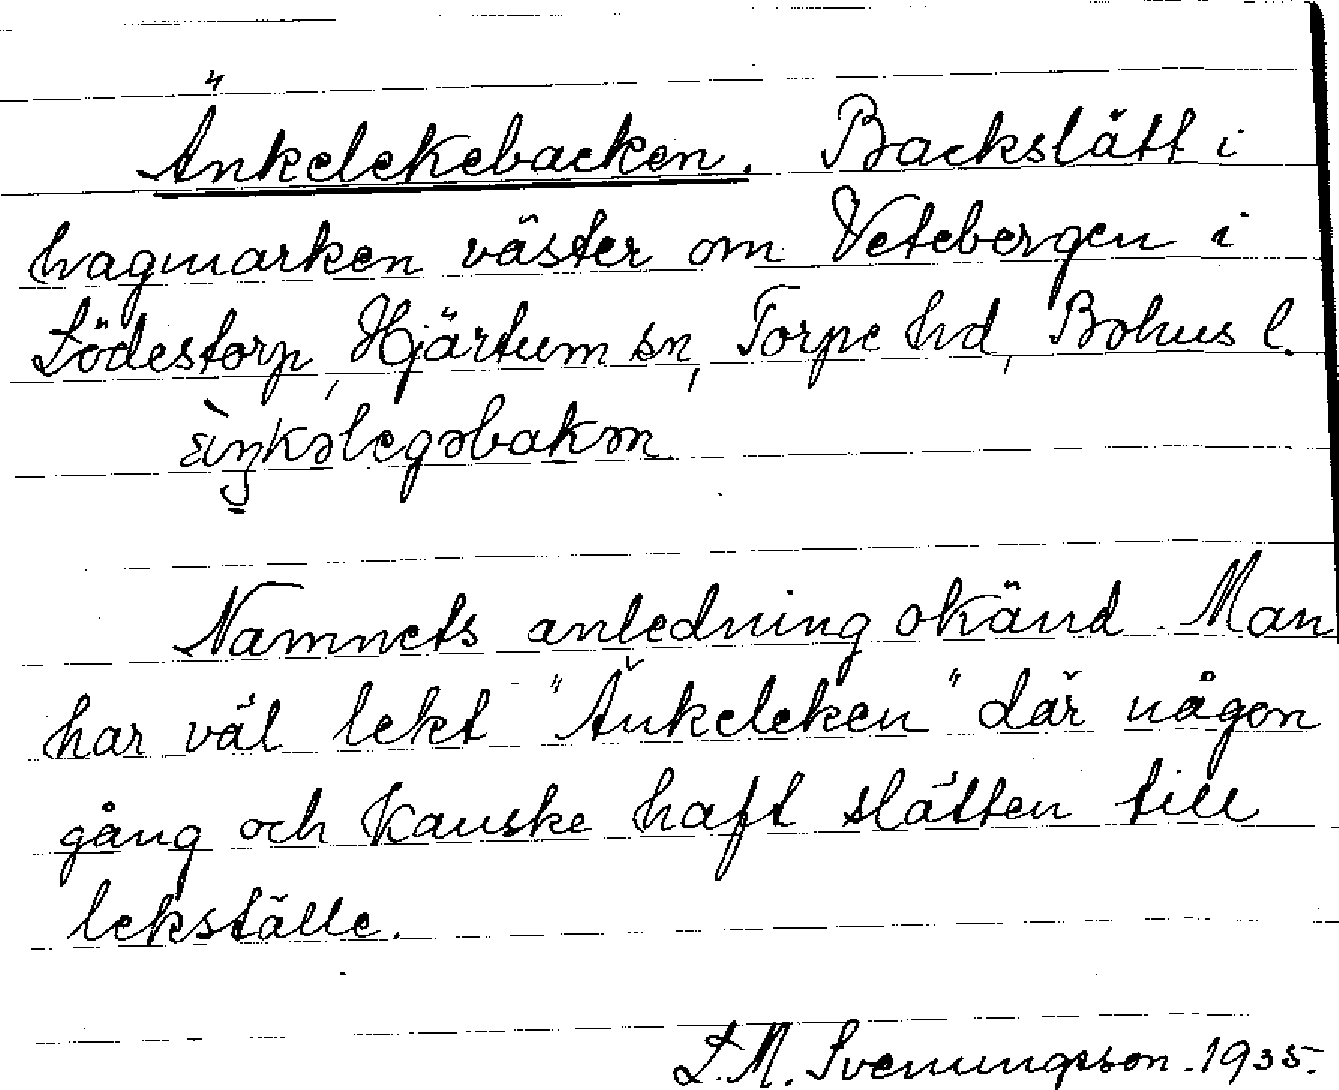 Änkelekebacken. Backslätt i
hagmarken väster om Vetebergen i
Södestorp, Hjärtum sn, Torpe hd, Bohus l.
Namnets anledning okänd. Man
har väl lekt "Änkeleken" där någon
gång och kanske haft slätten till
lekställe.
L.M. Svenungsson. 1935.